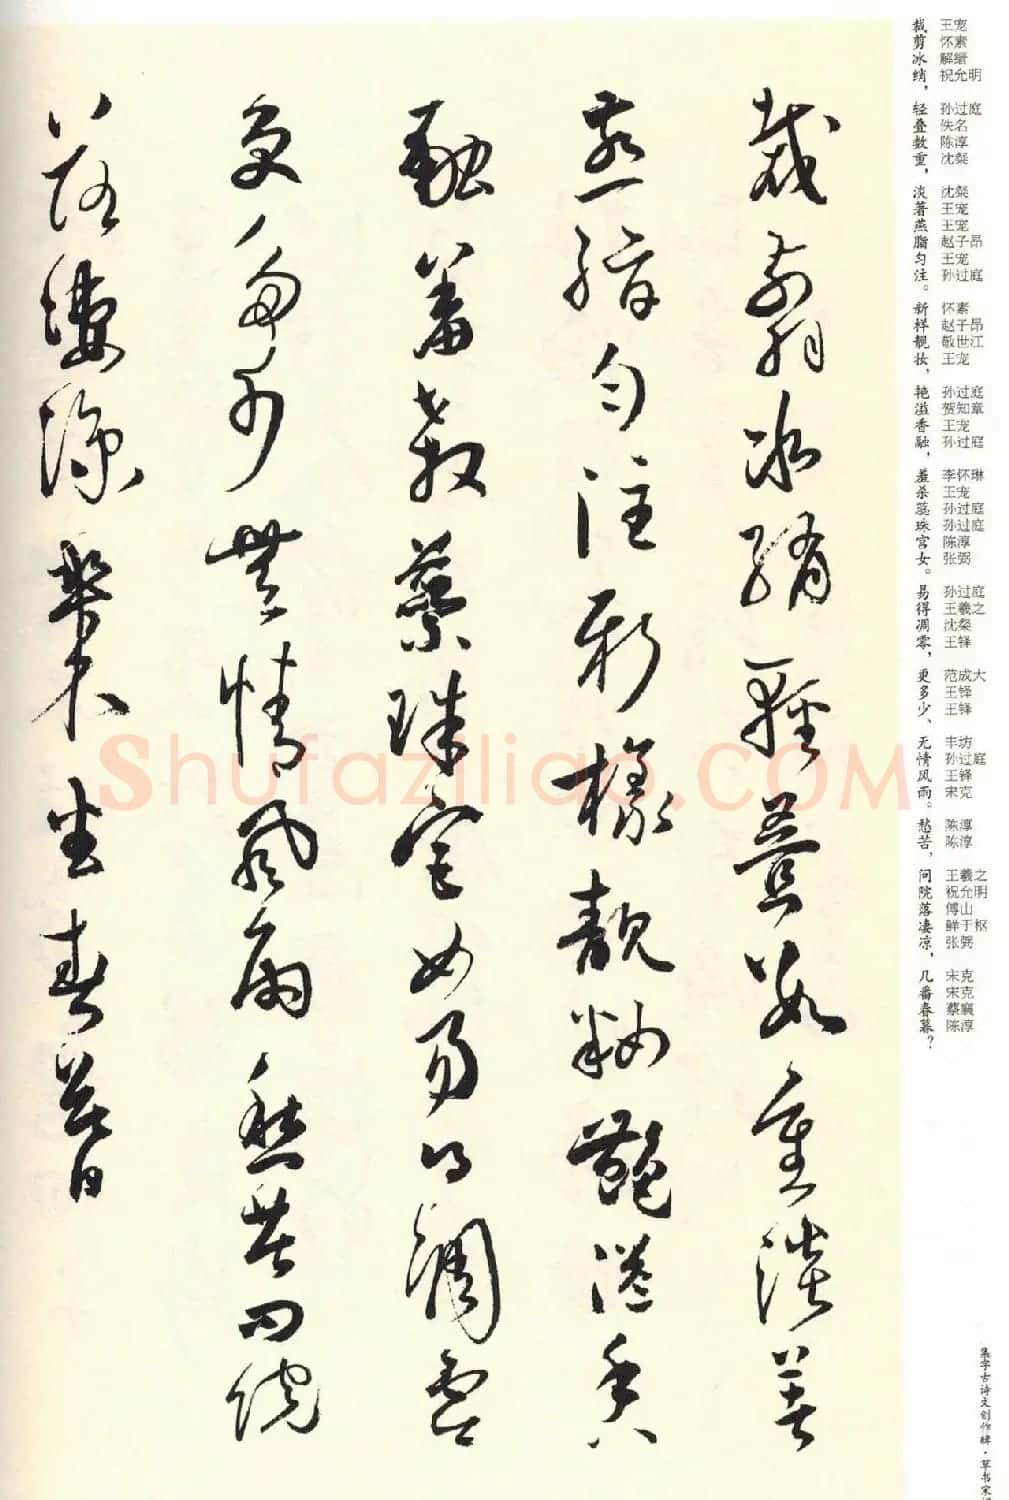 裁剪冰绡，轻叠数重，淡著燕脂匀注。新样靓妆，艳溢香融，羞杀蕊珠宫女。易得凋零，更多少、无情风雨。愁苦，问院落凄凉，几番春暮？
王宠
怀素
解缙
祝允明
孙过庭
佚名
陈淳
沈粲
沈粲
王宠
王宠
赵子昂
王宠
孙过庭
怀素
赵子昂
敬世江
王宠
孙过庭
贺知章
王宠
孙过庭
李怀琳
王宠
孙过庭
孙过庭
陈淳
张弼
孙过庭
王羲之
沈粲
王铎
范成大
王铎
王铎
丰坊
孙过庭
王铎
宋克
陈淳
陈淳
王羲之
祝允明
傅山
鲜于枢
张弼
宋克
宋克
蔡襄
陈淳
集字古诗文创作碑·草书宋
裁翦冰綃輕疊數重淡著
燕脂匀注新樣靚妝艷溢香
融羞殺蕊珠宮女易得凋零
更多少無情風雨愁苦問院
落凄涼幾番春暮
Shufaziliao.COM